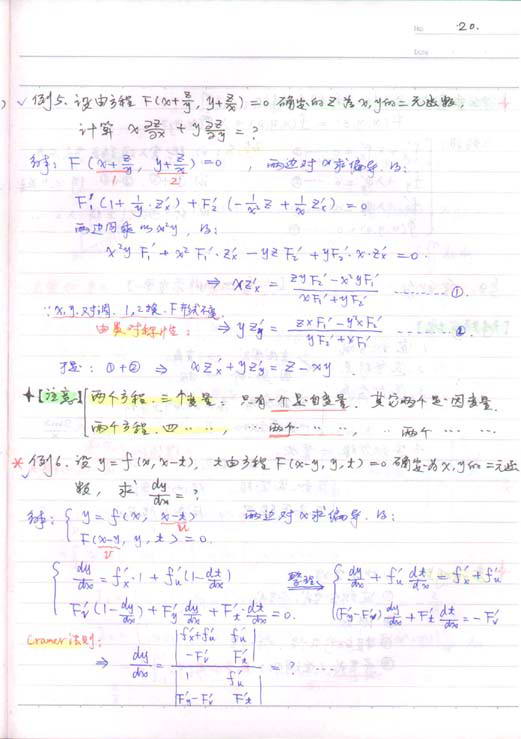 No. 20.
Date
例5. 设由方程 F(x+z/y, y+z/x)=0 确定的 z 为 x,y 的二元函数,
计算 x ∂z/∂x + y ∂z/∂y = ?
解: F(x+z/y, y+z/x)=0, 两边对 x 求偏导. 得:
1 2
F₁'(1+1/y·z'ₓ)+F₂'(-1/x² z+1/x z'ₓ)=0
两边同乘以 x²y, 得:
x²yF₁'+x²F₁'·z'ₓ-yzF₂'+yF₂'·x·z'ₓ=0.
⇒ xz'ₓ = (zyF₂'-x²yF₁')/(xF₁'+yF₂') ……… ①.
∵ x,y 对调. 1,2 换. F 形式不变.
由其对称性: ⇒ yz'y = (zxF₁'-y²xF₂')/(yF₂'+xF₁') ……… ②.
于是: ①+② ⇒ xz'ₓ+yz'y = z-xy
[注意] 两个方程. 三个变量: 只有一个是自变量. 其它两个是因变量.
两个方程. 四 ‥ ‥, ‥ 两个 ‥ ‥, ‥ 两个 ‥ ‥
* 例6. 设 y=f(x, x-t), t 由方程 F(x-y, y, t)=0 确定为 x,y 的二元函
数, 求 dy/dx = ?
解: { y=f(x, x-t) 两边对 x 求偏导. 得:
u
F(x-y, y, t)=0.
v
{ dy/dx = f'ₓ·1+f'u(1-dt/dx) 整理⇒ { dy/dx+f'u dt/dx = f'ₓ+f'u
F'v(1-dy/dx)+F'y dy/dx+F't·dt/dx=0. (F'y-F'v)dy/dx+F't dt/dx = -F'v
Cramer法则:
⇒ dy/dx = |f'ₓ+f'u f'u; -F'v F't| / |1 f'u; F'y-F'v F't| = ? …